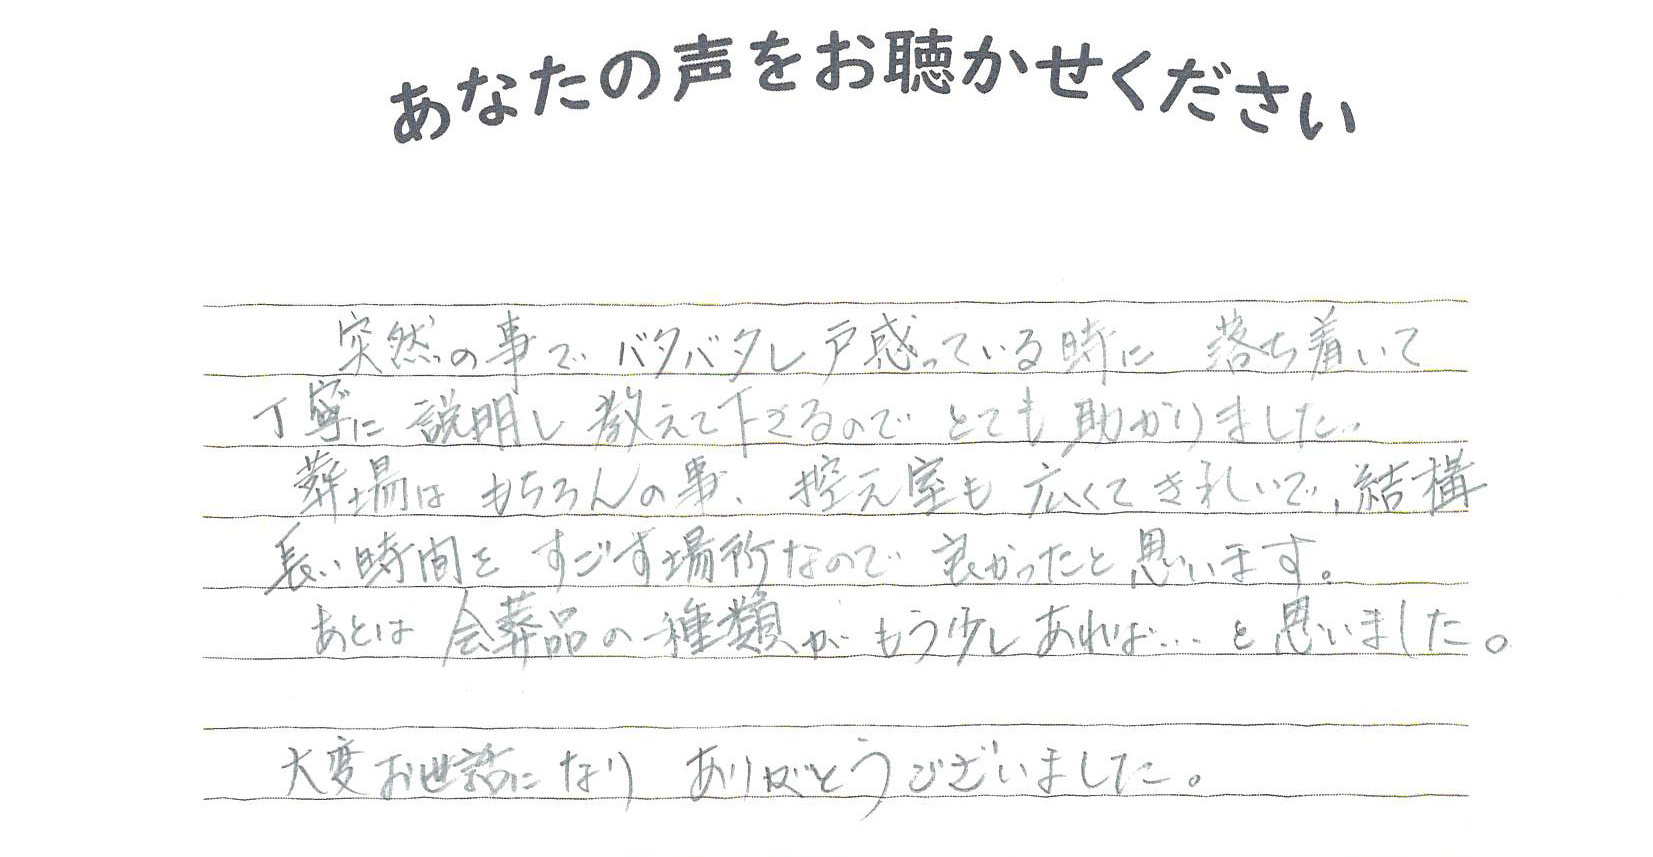 あなたの声をお聴かせください
突然の事でバタバタし戸惑っている時に 落ち着いて
丁寧に説明し教えて下さるので とても助かりました。
葬場はもちろんの事、控え室も広くてきれいで、結構
長い時間をすごす場所なので 良かったと思います。
あとは会葬品の種類がもう少しあれば…と思いました。
大変お世話になり ありがとうございました。